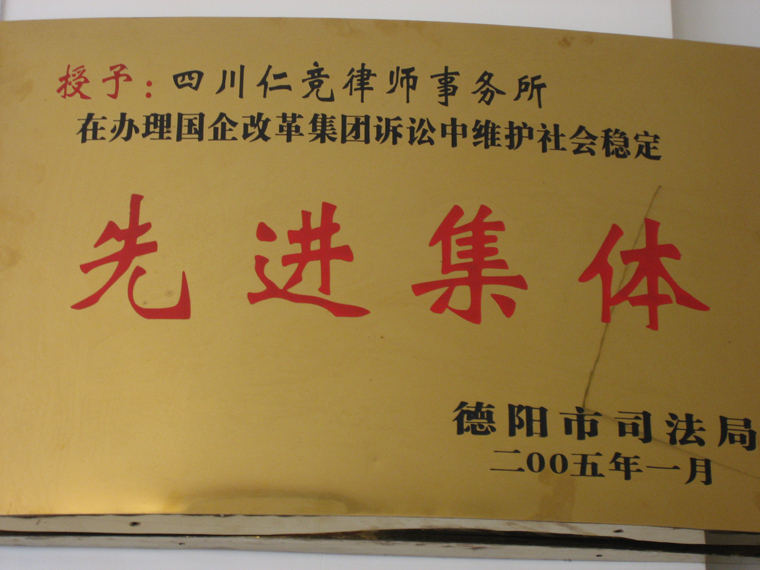 授予：四川仁竞律师事务所
在办理国企改革集团诉讼中维护社会稳定
先进集体
德阳市司法局
二00五年一月